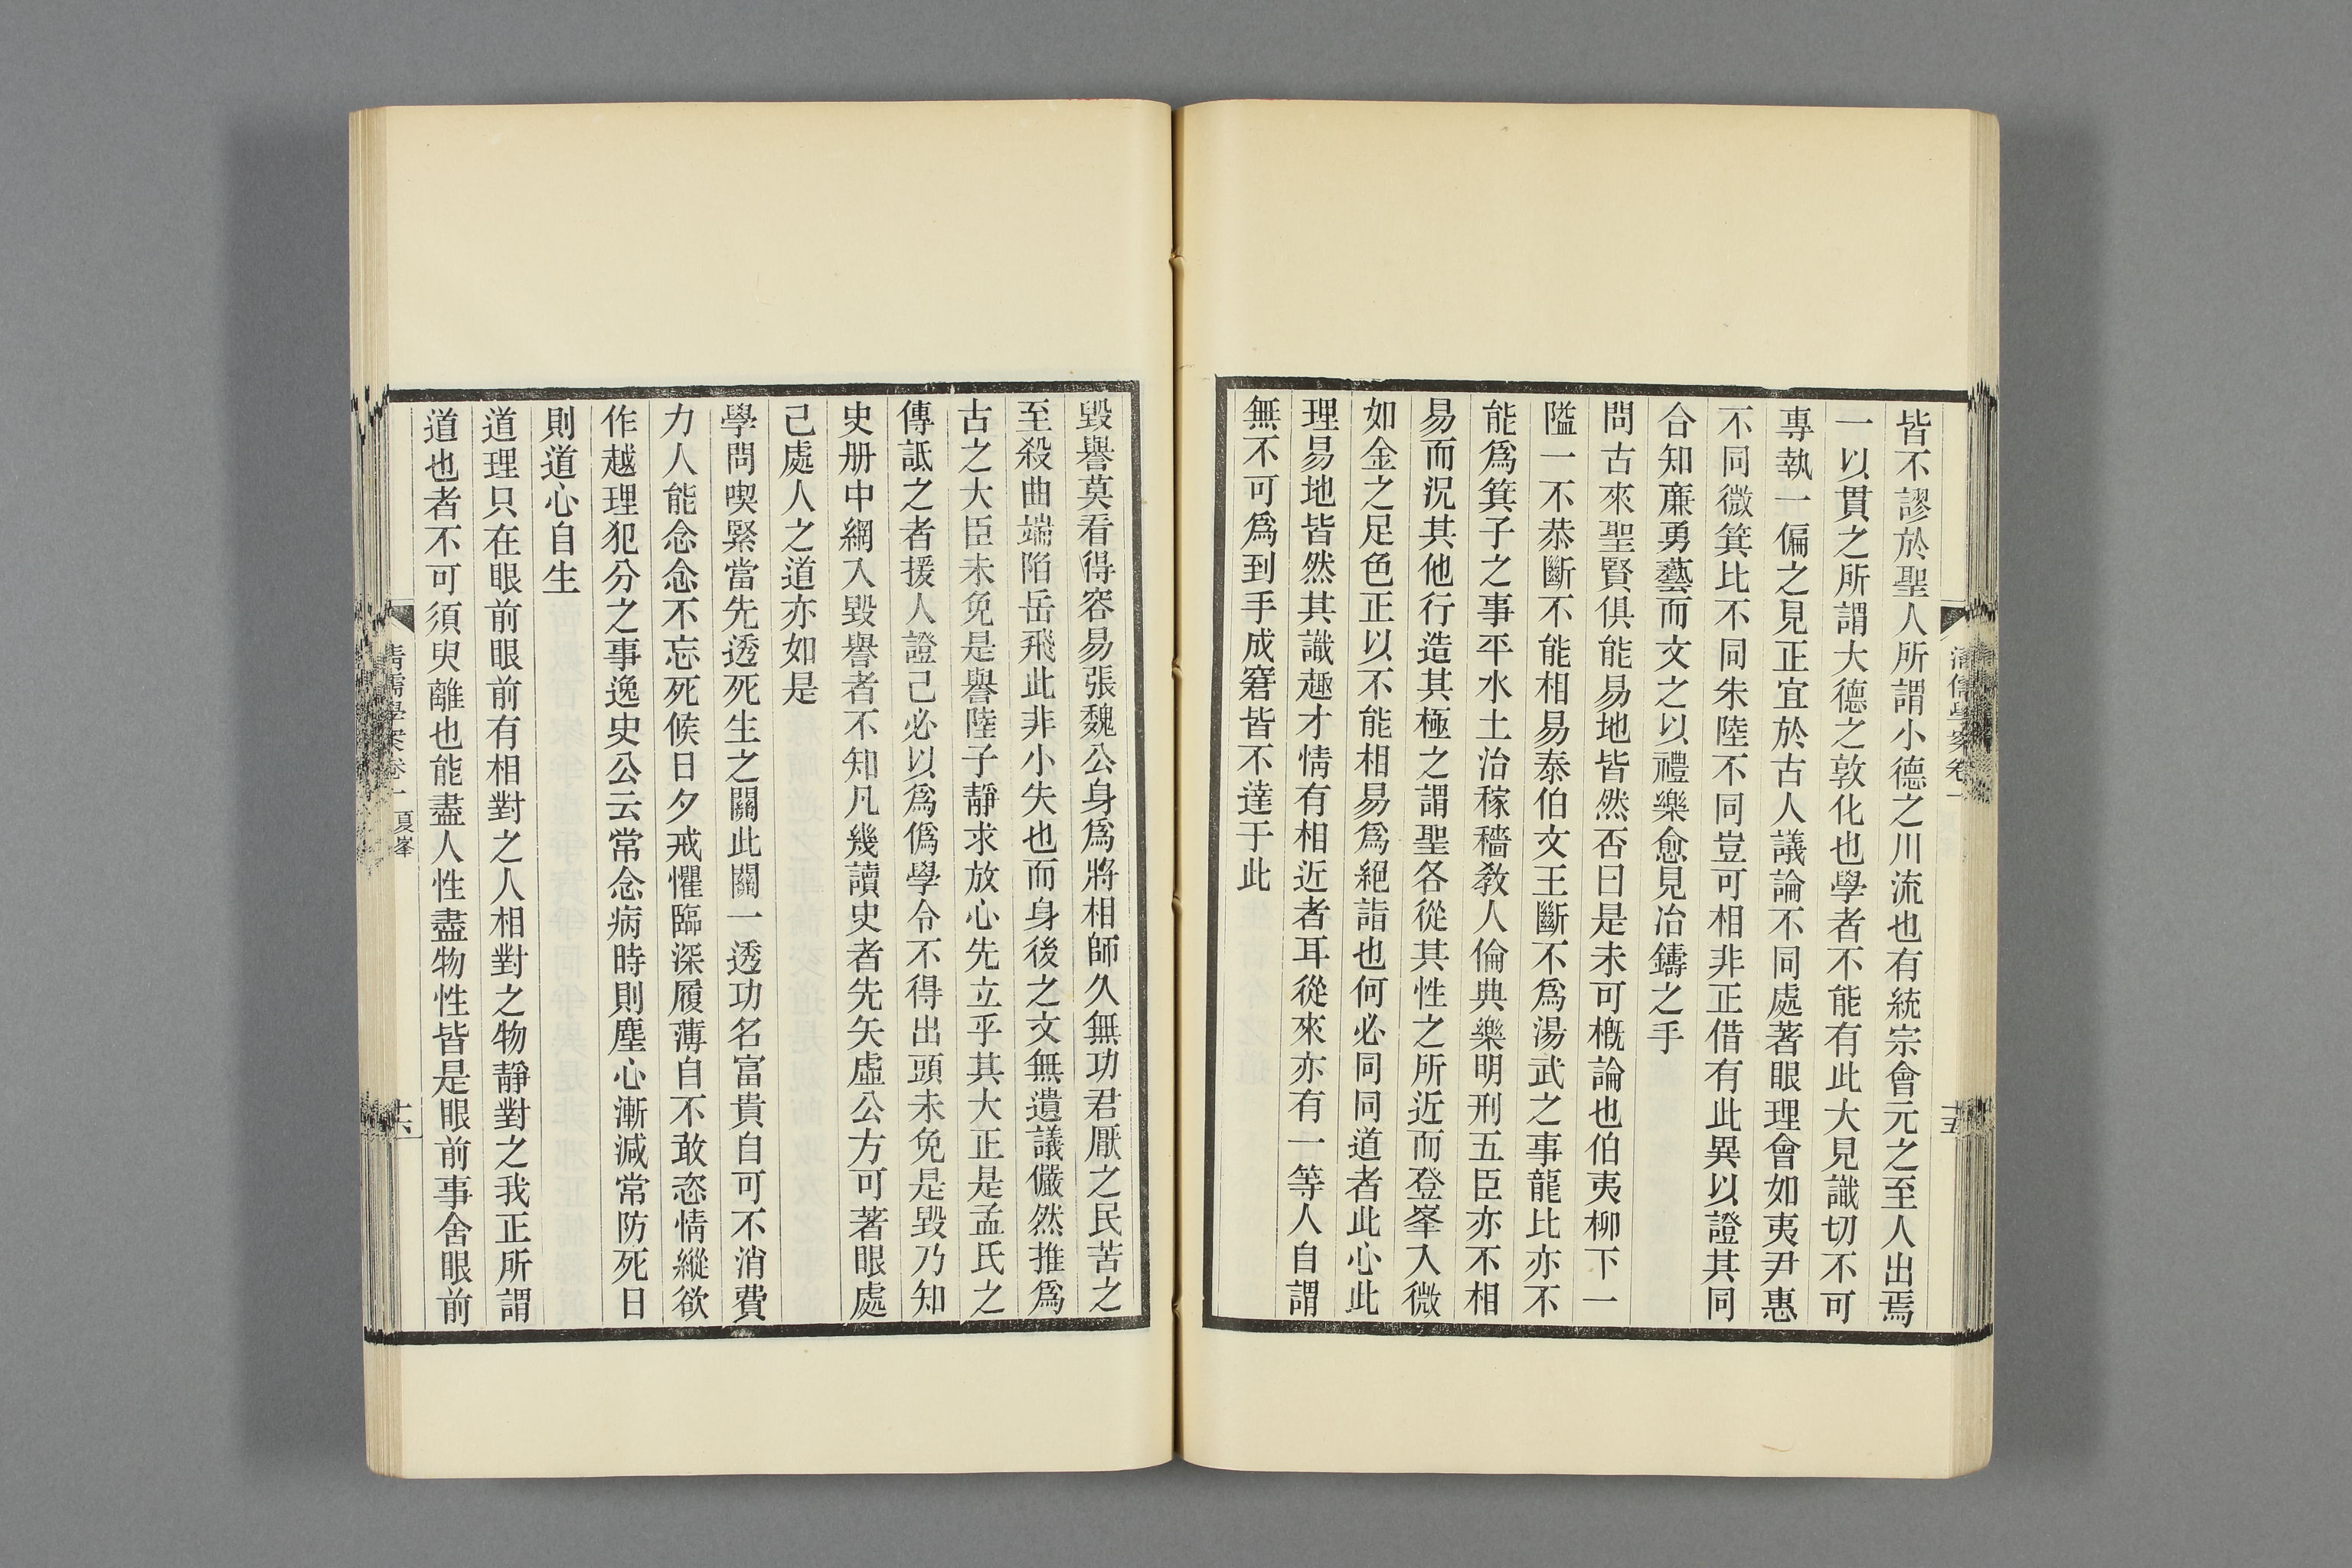 清儒學案卷一
十五
皆不謬於聖人所謂小德之川流也有統宗會元之至人出焉
一以貫之所謂大德之敦化也學者不能有此大見識切不可
專執一偏之見正宜於古人議論不同處著眼理會如夷尹惠
不同微箕比不同朱陸不同豈可相非正借有此異以證其同
合知廉勇藝而文之以禮樂愈見冶鑄之手
問古來聖賢俱能易地皆然否曰是未可槪論也伯夷柳下一
隘一不恭斷不能相易泰伯文王斷不爲湯武之事龍比亦不
能爲箕子之事平水土治稼穡敎人倫典樂明刑五臣亦不相
易而況其他行造其極之謂聖各從其性之所近而登峯入微
如金之足色正以不能相易爲絕詣也何必同同道者此心此
理易地皆然其識趣才情有相近者耳從來亦有一等人自謂
無不可爲到手成窘皆不達于此
毀譽莫看得容易張魏公身爲將相師久無功君厭之民苦之
至殺曲端陷岳飛此非小失也而身後之文無遺議儼然推爲
古之大臣未免是譽陸子靜求放心先立乎其大正是孟氏之
傳詆之者援人證己必以爲僞學令不得出頭未免是毀乃知
史册中網入毀譽者不知凡幾讀史者先矢虛公方可著眼處
己處人之道亦如是
學問喫緊當先透死生之關此關一透功名富貴自可不消費
力人能念念不忘死候日夕戒懼臨深履薄自不敢恣情縱欲
作越理犯分之事逸史公云常念病時則塵心漸減常防死日
則道心自生
道理只在眼前眼前有相對之人相對之物靜對之我正所謂
道也者不可須臾離也能盡人性盡物性皆是眼前事舍眼前
清儒學案卷一 夏峯
十六